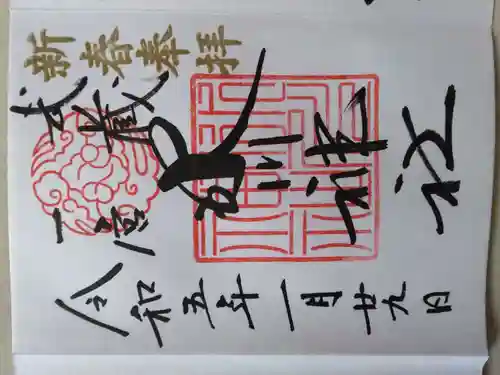 新春奉拝
武蔵一宮
氷川神社
令和五年一月廿九日